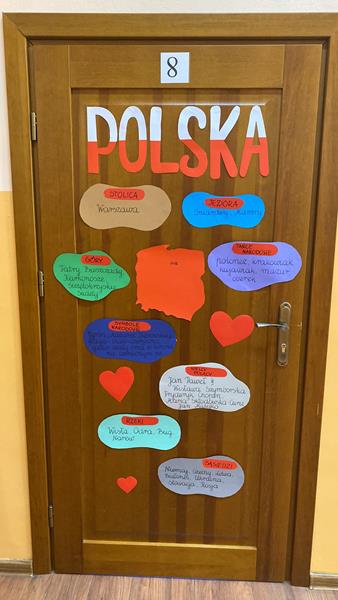 8
POLSKA
STOLICA
Warszawa
JEZIORA
Śniardwy, Mamry
GÓRY
Tatry, Bieszczady
Karkonosze,
Świętokrzyskie
Sudety
TAŃCE
NARODOWE
polonez, krakowiak
kujawiak, mazur
oberek
SYMBOLE
NARODOWE
WIELCY
POLACY
Jan Paweł II
Wisława Szymborska
Fryderyk Chopin
Maria Skłodowska-Curie
Jan Matejko
RZEKI
Wisła, Odra, Bug,
Narew
SĄSIEDZI
Niemcy, Czechy, Litwa,
Białoruś, Ukraina,
Słowacja, Rosja